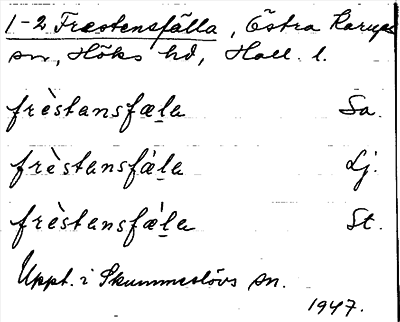 1-2 Frestensfälla, Östra Karups
sn, Höks hd, Hall. l.
frèstansfæla Sa.
frèstansfä̀la Lj.
frèstansfæ̀la St.
Uppt. i Skummeslövs sn.
1947.